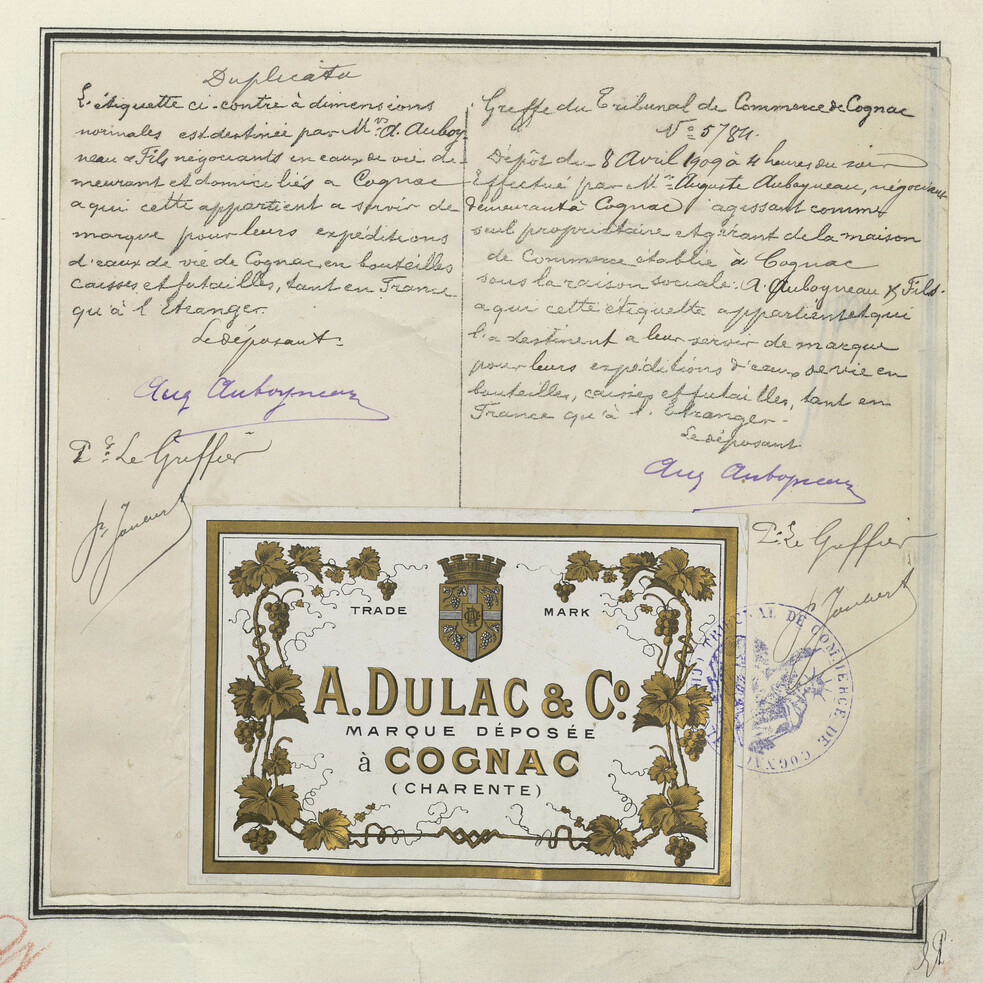 Duplicata
L'étiquette ci-contre à dimensions
normales est destinée par Mrs A. Auboy-
neau & Fils négociants en eaux de vie de-
meurant et domiciliés a Cognac
a qui cette appartient a servir de
marque pour leurs expéditions
d'eaux de vie de Cognac, en bouteilles
caisses et futailles, tant en France
qu'à l'Etranger.
Le déposant
Aug Auboyneau
Pr Le Greffier
Greffe du Tribunal de Commerce de Cognac
No 5784.
Dépôt du 8 Avril 1909 à 4 heures du soir
Effectué par Mr Auguste Auboyneau, négociant
demeurant à Cognac agissant comme
seul propriétaire et gérant de la maison
de Commerce établie à Cognac
sous la raison sociale. A. Auboyneau & Fils.
a qui cette étiquette appartient et qui
l'a destinent a leur servir de marque
pour leurs expéditions d'eaux de vie en
bouteilles, caisses et futailles, tant en
France qu'à l'Etranger-
Le déposant
Aug Auboyneau
Pr Le Greffier
TRADE MARK
A. DULAC & Co.
MARQUE DÉPOSÉE
à COGNAC
(CHARENTE)
TRIBUNAL DE COMMERCE DE COGNAC